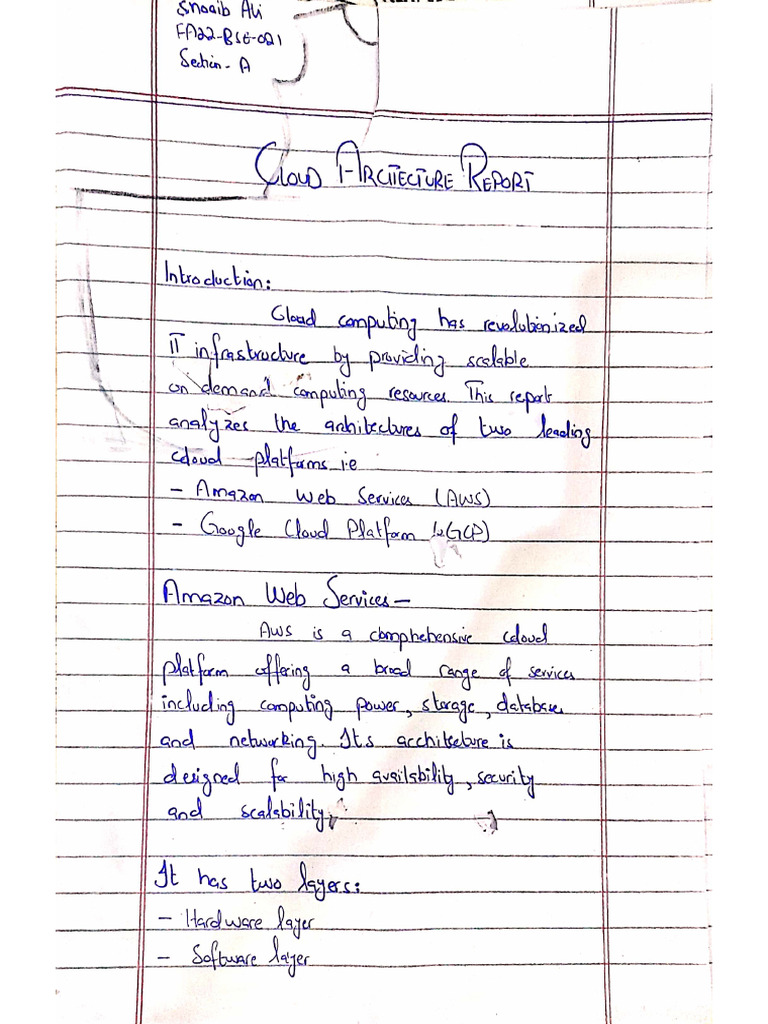 Shoaib Ali
FA22-BSE-021
Section - A
CLOUD ARCITECTURE REPORT
Introduction:
Cloud computing has revolutionized
IT infrastructure by providing scalable
on demand computing resources. This report
analyzes the architectures of two leading
cloud platforms i.e
- Amazon Web Services (AWS)
- Google Cloud Platform (GCP)
Amazon Web Services -
AWS is a comphehensive cloud
platform offering a broad range of services
including computing power, storage, databases
and networking. Its architecture is
designed for high availability, security
and scalability.
It has two layers:
- Hardware layer
- Software layer